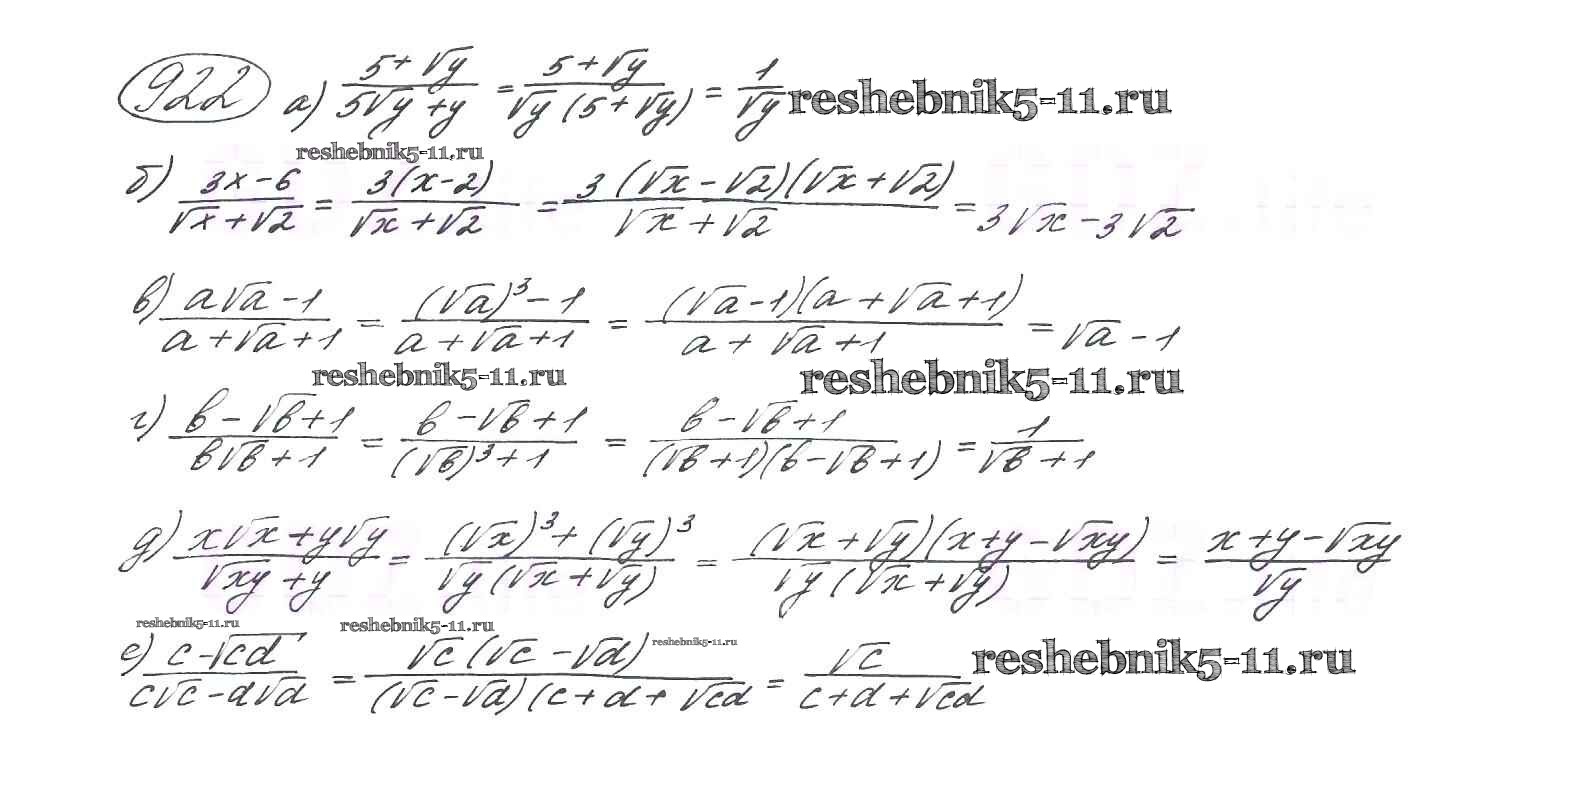 922 а) (5+√y)/(5√y+y) = (5+√y)/(√y(5+√y)) = 1/√y reshebnik5-11.ru
reshebnik5-11.ru
б) (3x-6)/(√x+√2) = 3(x-2)/(√x+√2) = 3(√x-√2)(√x+√2)/(√x+√2) = 3√x-3√2
в) (a√a-1)/(a+√a+1) = ((√a)³-1)/(a+√a+1) = (√a-1)(a+√a+1)/(a+√a+1) = √a-1
reshebnik5-11.ru reshebnik5-11.ru
г) (b-√b+1)/(b√b+1) = (b-√b+1)/((√b)³+1) = (b-√b+1)/((√b+1)(b-√b+1)) = 1/(√b+1)
д) (x√x+y√y)/(√xy+y) = ((√x)³+(√y)³)/(√y(√x+√y)) = (√x+√y)(x+y-√xy)/(√y(√x+√y)) = (x+y-√xy)/√y
reshebnik5-11.ru reshebnik5-11.ru reshebnik5-11.ru
е) (c-√cd)/(c√c-d√d) = √c(√c-√d)/((√c-√d)(c+d+√cd = √c/(c+d+√cd) reshebnik5-11.ru